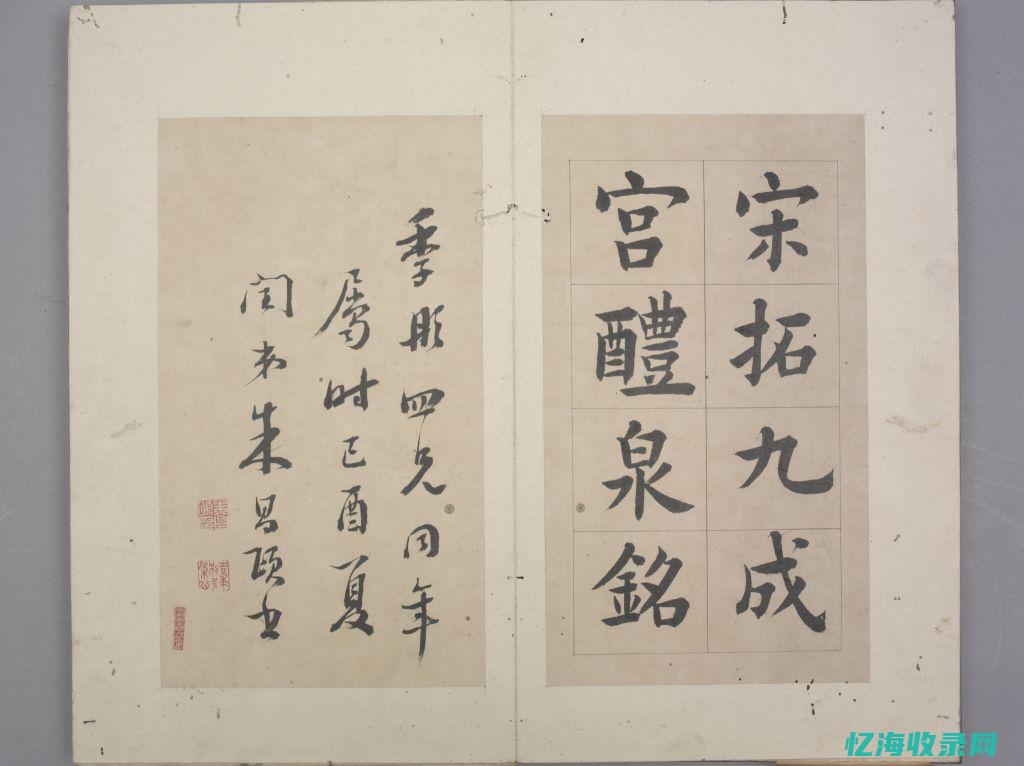 宋拓九成
宫醴泉銘
季彤四兄同年
屬時己酉夏
閏弟朱昌頤書
忆海收录网